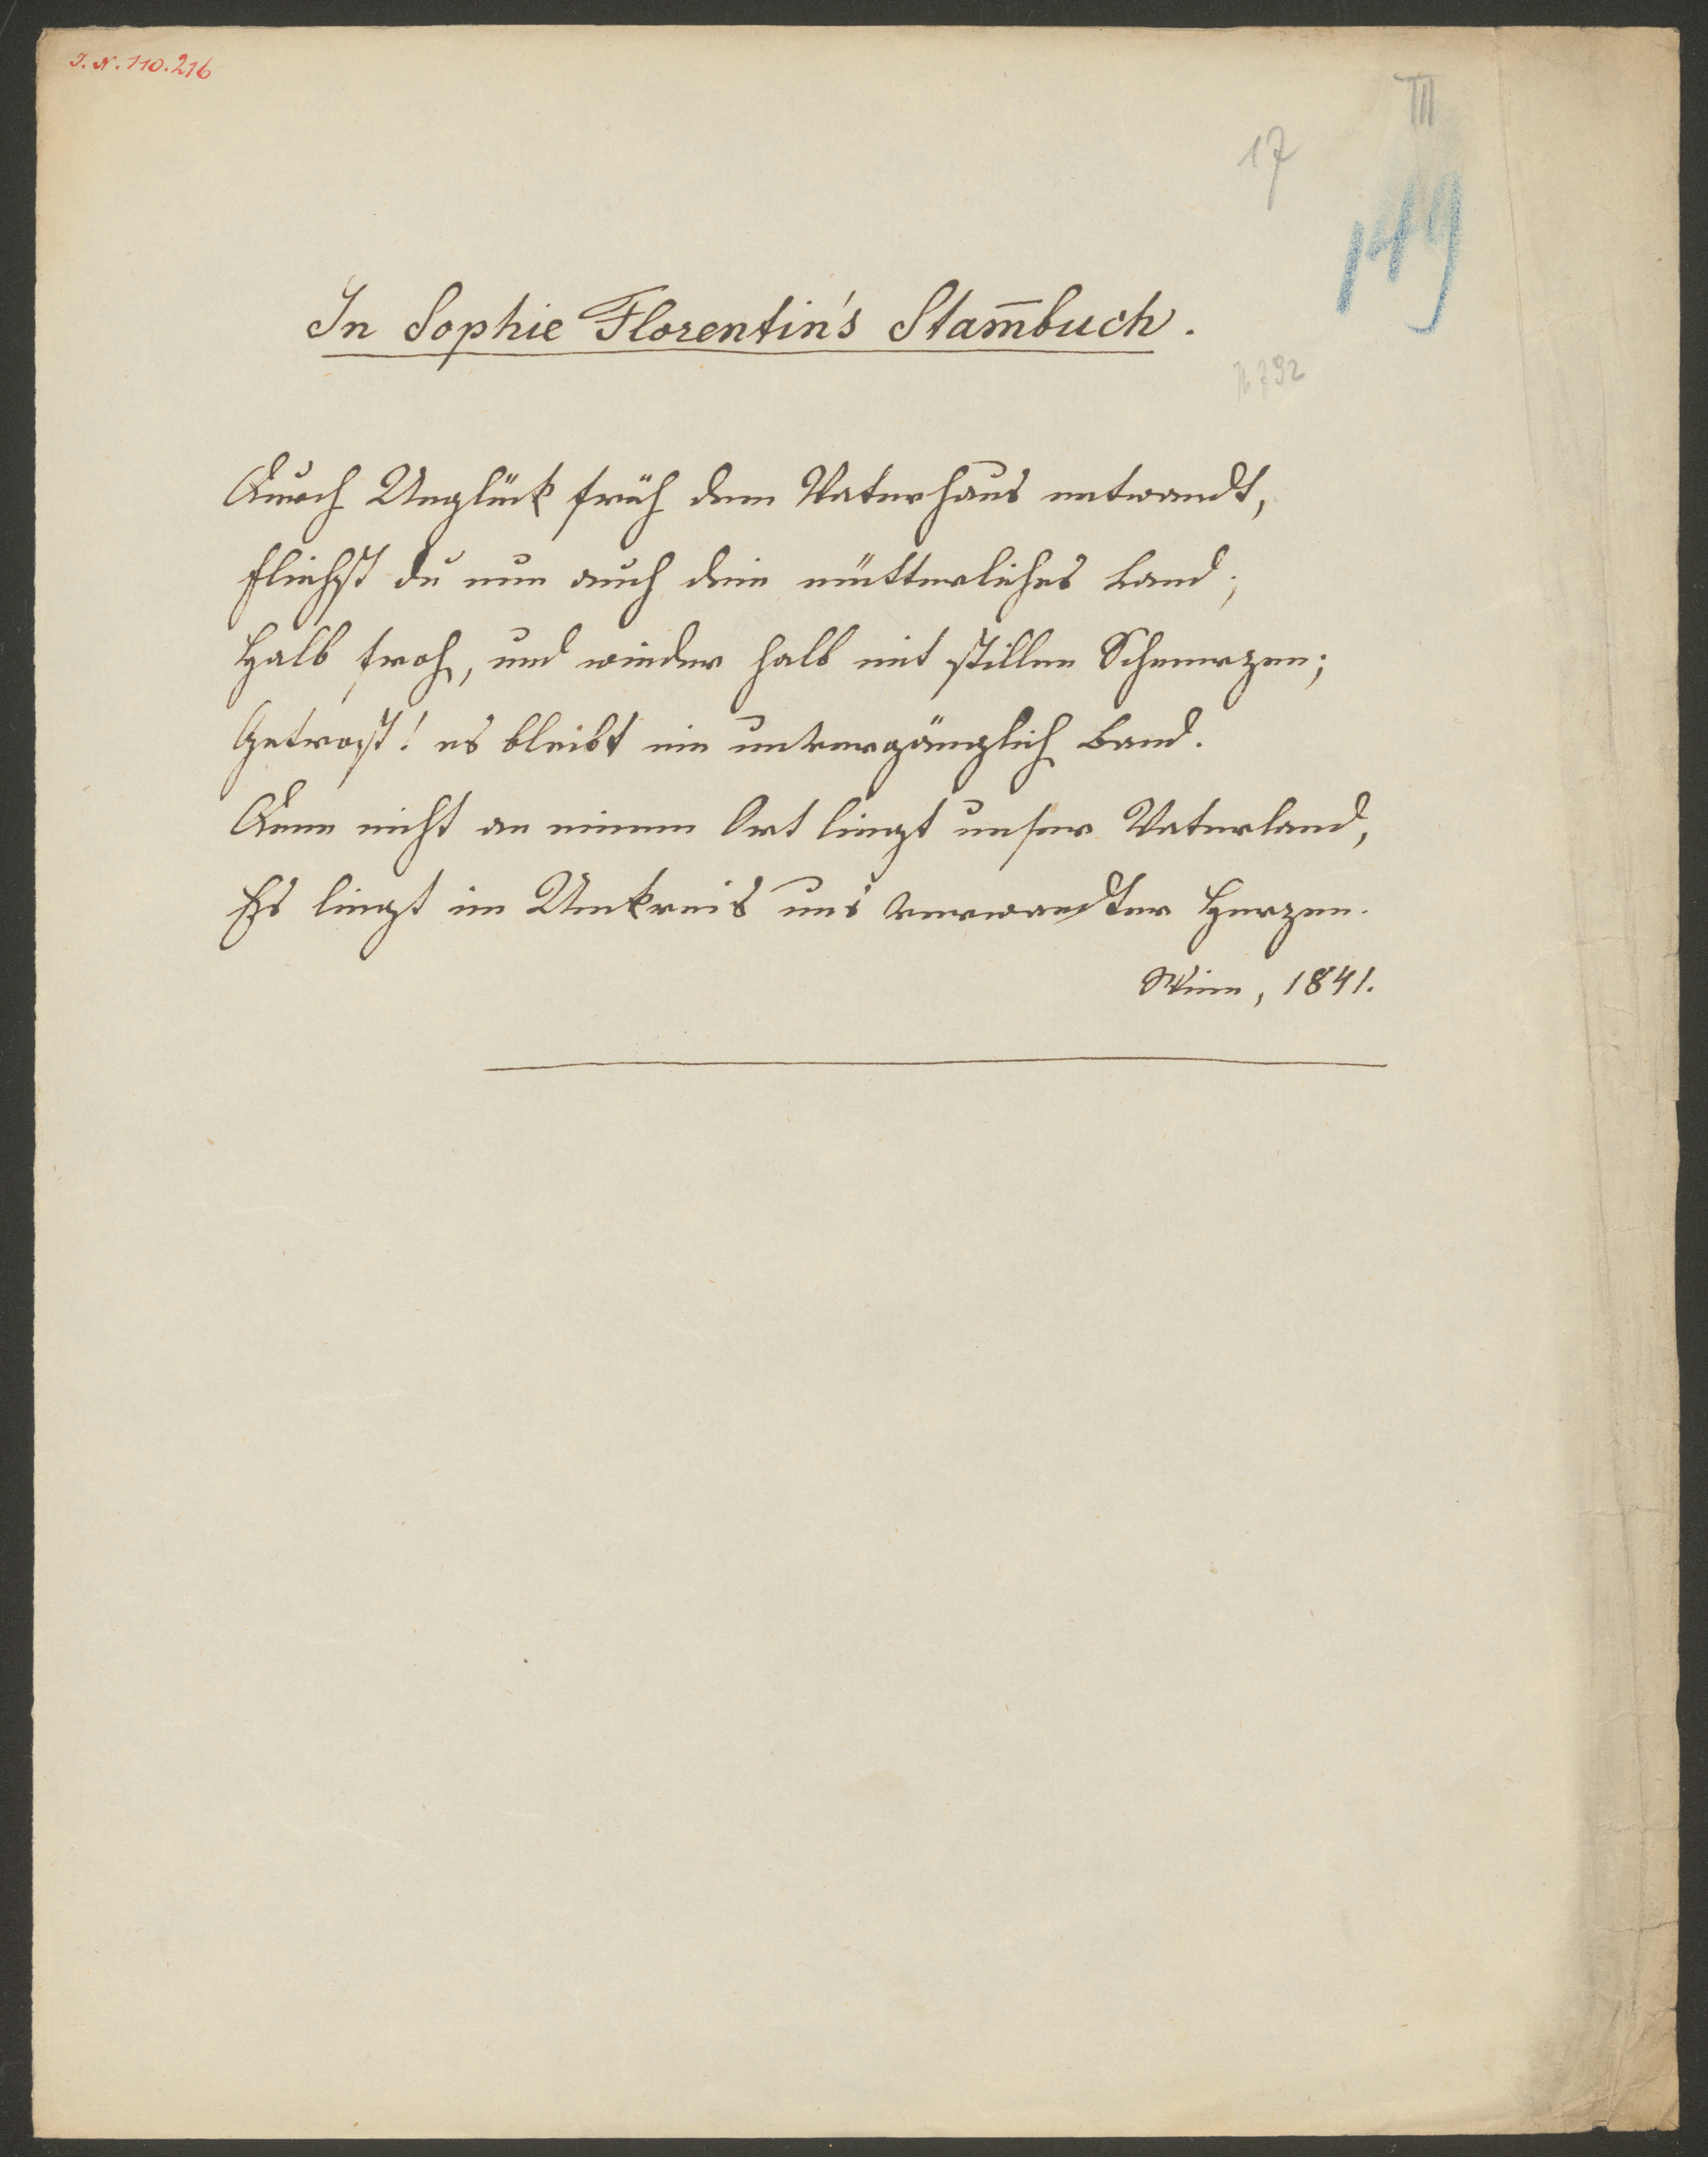 J. N. 110.216
III
17
149
In Sophie Florentin's Stam̅buch.
Durch Unglück früh dem Vaterhaus entwandt,
Fliehst du nun auch dein mütterliches Land;
Halb froh, und wieder halb mit stillen Schmerzen;
Getrost! es bleibt ein unvergänglich Band.
Denn nicht an einem Ort liegt unser Vaterland,
Es liegt im Umkreis uns verwandter Herzen.
Wien, 1841.